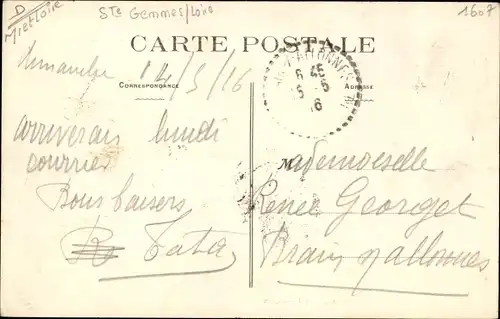 D
M et Loire
Ste Gemmes / Loire
1607
CARTE POSTALE
Dimanche 14/5/16
CORRESPONDANCE
ADRESSE
6 45
16
arriverais lundi
courrier
Bons baisers
Tata
Mademoiselle
Renée Georget
Brain s/ allonnes